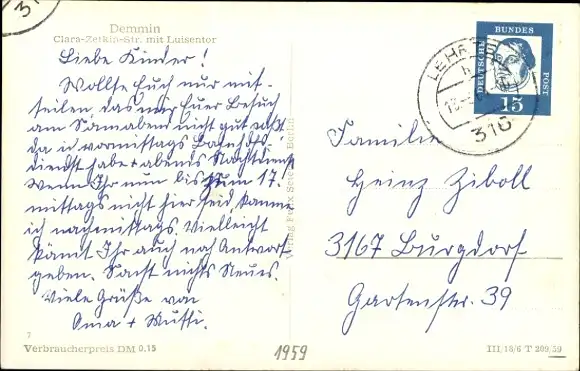 Demmin
Clara-Zetkin-Str. mit Luisentor
Liebe Kinder!
Wollte Euch nur mit-
teilen das mir Euer Besuch
am Sonnabend nicht gut paßt
da ich vormittags Bahnhofs
dienst habe + abends Nachtdienst
Wenn Ihr nun bis zum 17.
mittags nicht hier seid, komme
ich nachmittags. Vielleicht
könnt Ihr auch noch Antwort
geben. Sonst nichts Neues.
Viele Grüße von
Oma + Mutti.
7
Verbraucherpreis DM 0.15
1959
Verlag Berlin
DEUTSCHE
BUNDES
POST
15
LEHRTE
316
31
Familie
Heinz Ziboll
3167 Burgdorf
Gartenstr. 39
III/18/6 T 209/59